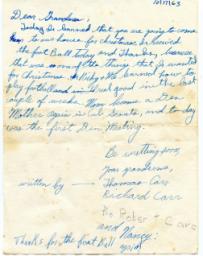 10/17/63
Dear Grandma,
Today I learned that you are going to come
to our house for christmas. We received
the foot Ball today and Thanks, because
that was something that I wanted
for Christmas. Nicky & We learned how to
play football and I'll good in the last
couple of weeks. Mom became a Den
Mother again in Cub Scouts, and to day
was the first Den Meeting.
Be writing soon,
your grandsons,
written by — Thomas Carr
Richard Carr
Peter Carr
and Nancy.
Thanks for the Foot Ball